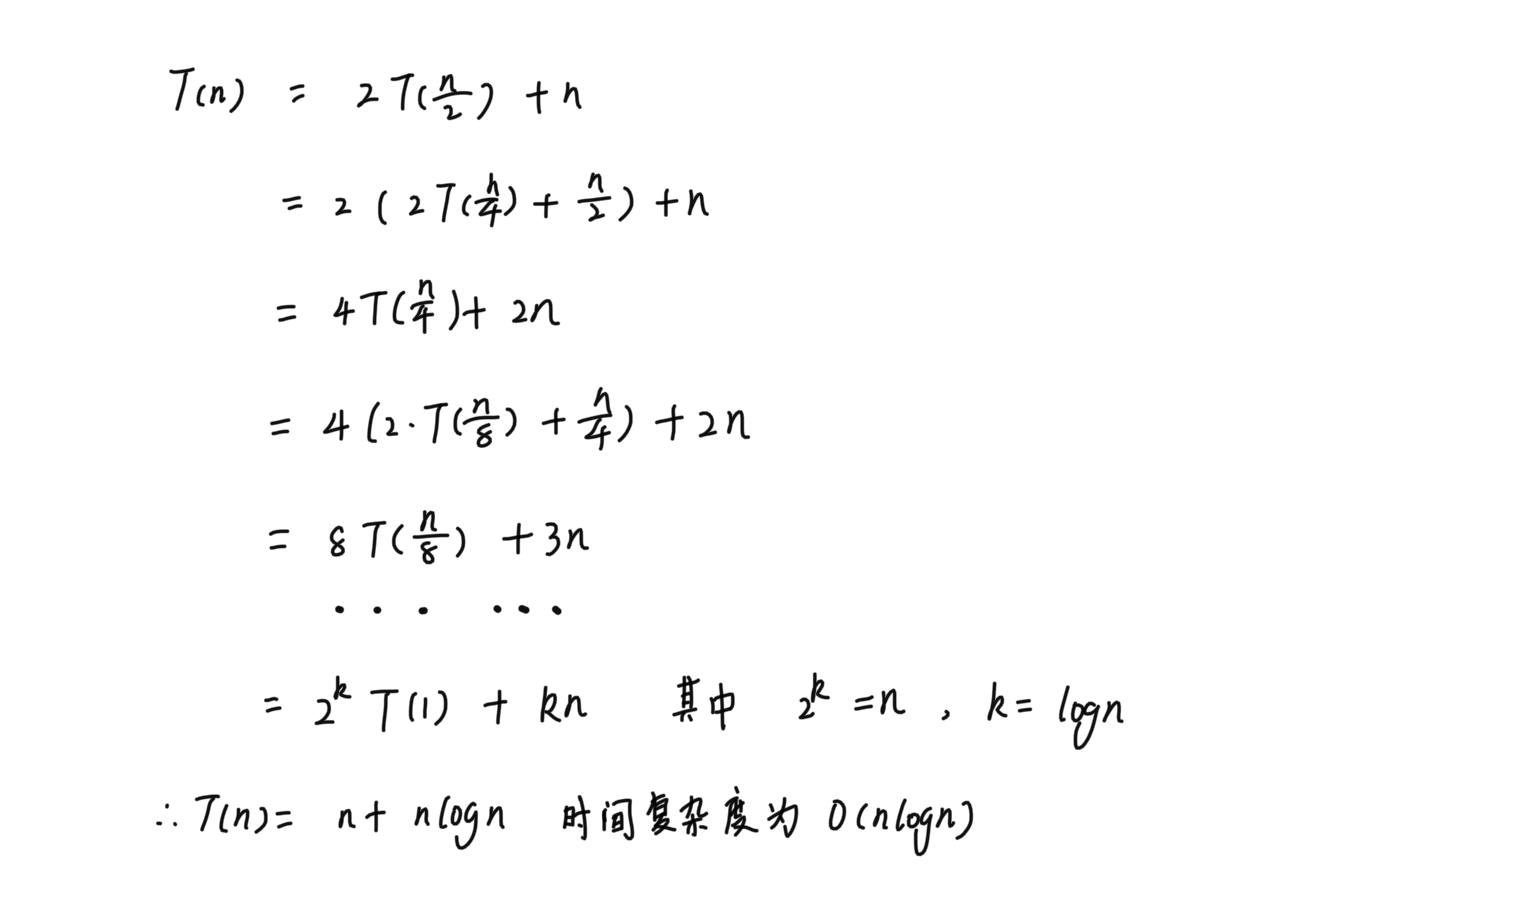 T(n) = 2T(n/2) + n
= 2(2T(n/4) + n/2) + n
= 4T(n/4) + 2n
= 4(2·T(n/8) + n/4) + 2n
= 8T(n/8) + 3n
... ...
= 2^k T(1) + kn 其中 2^k = n , k = logn
∴ T(n) = n + nlogn 时间复杂度为 O(nlogn)